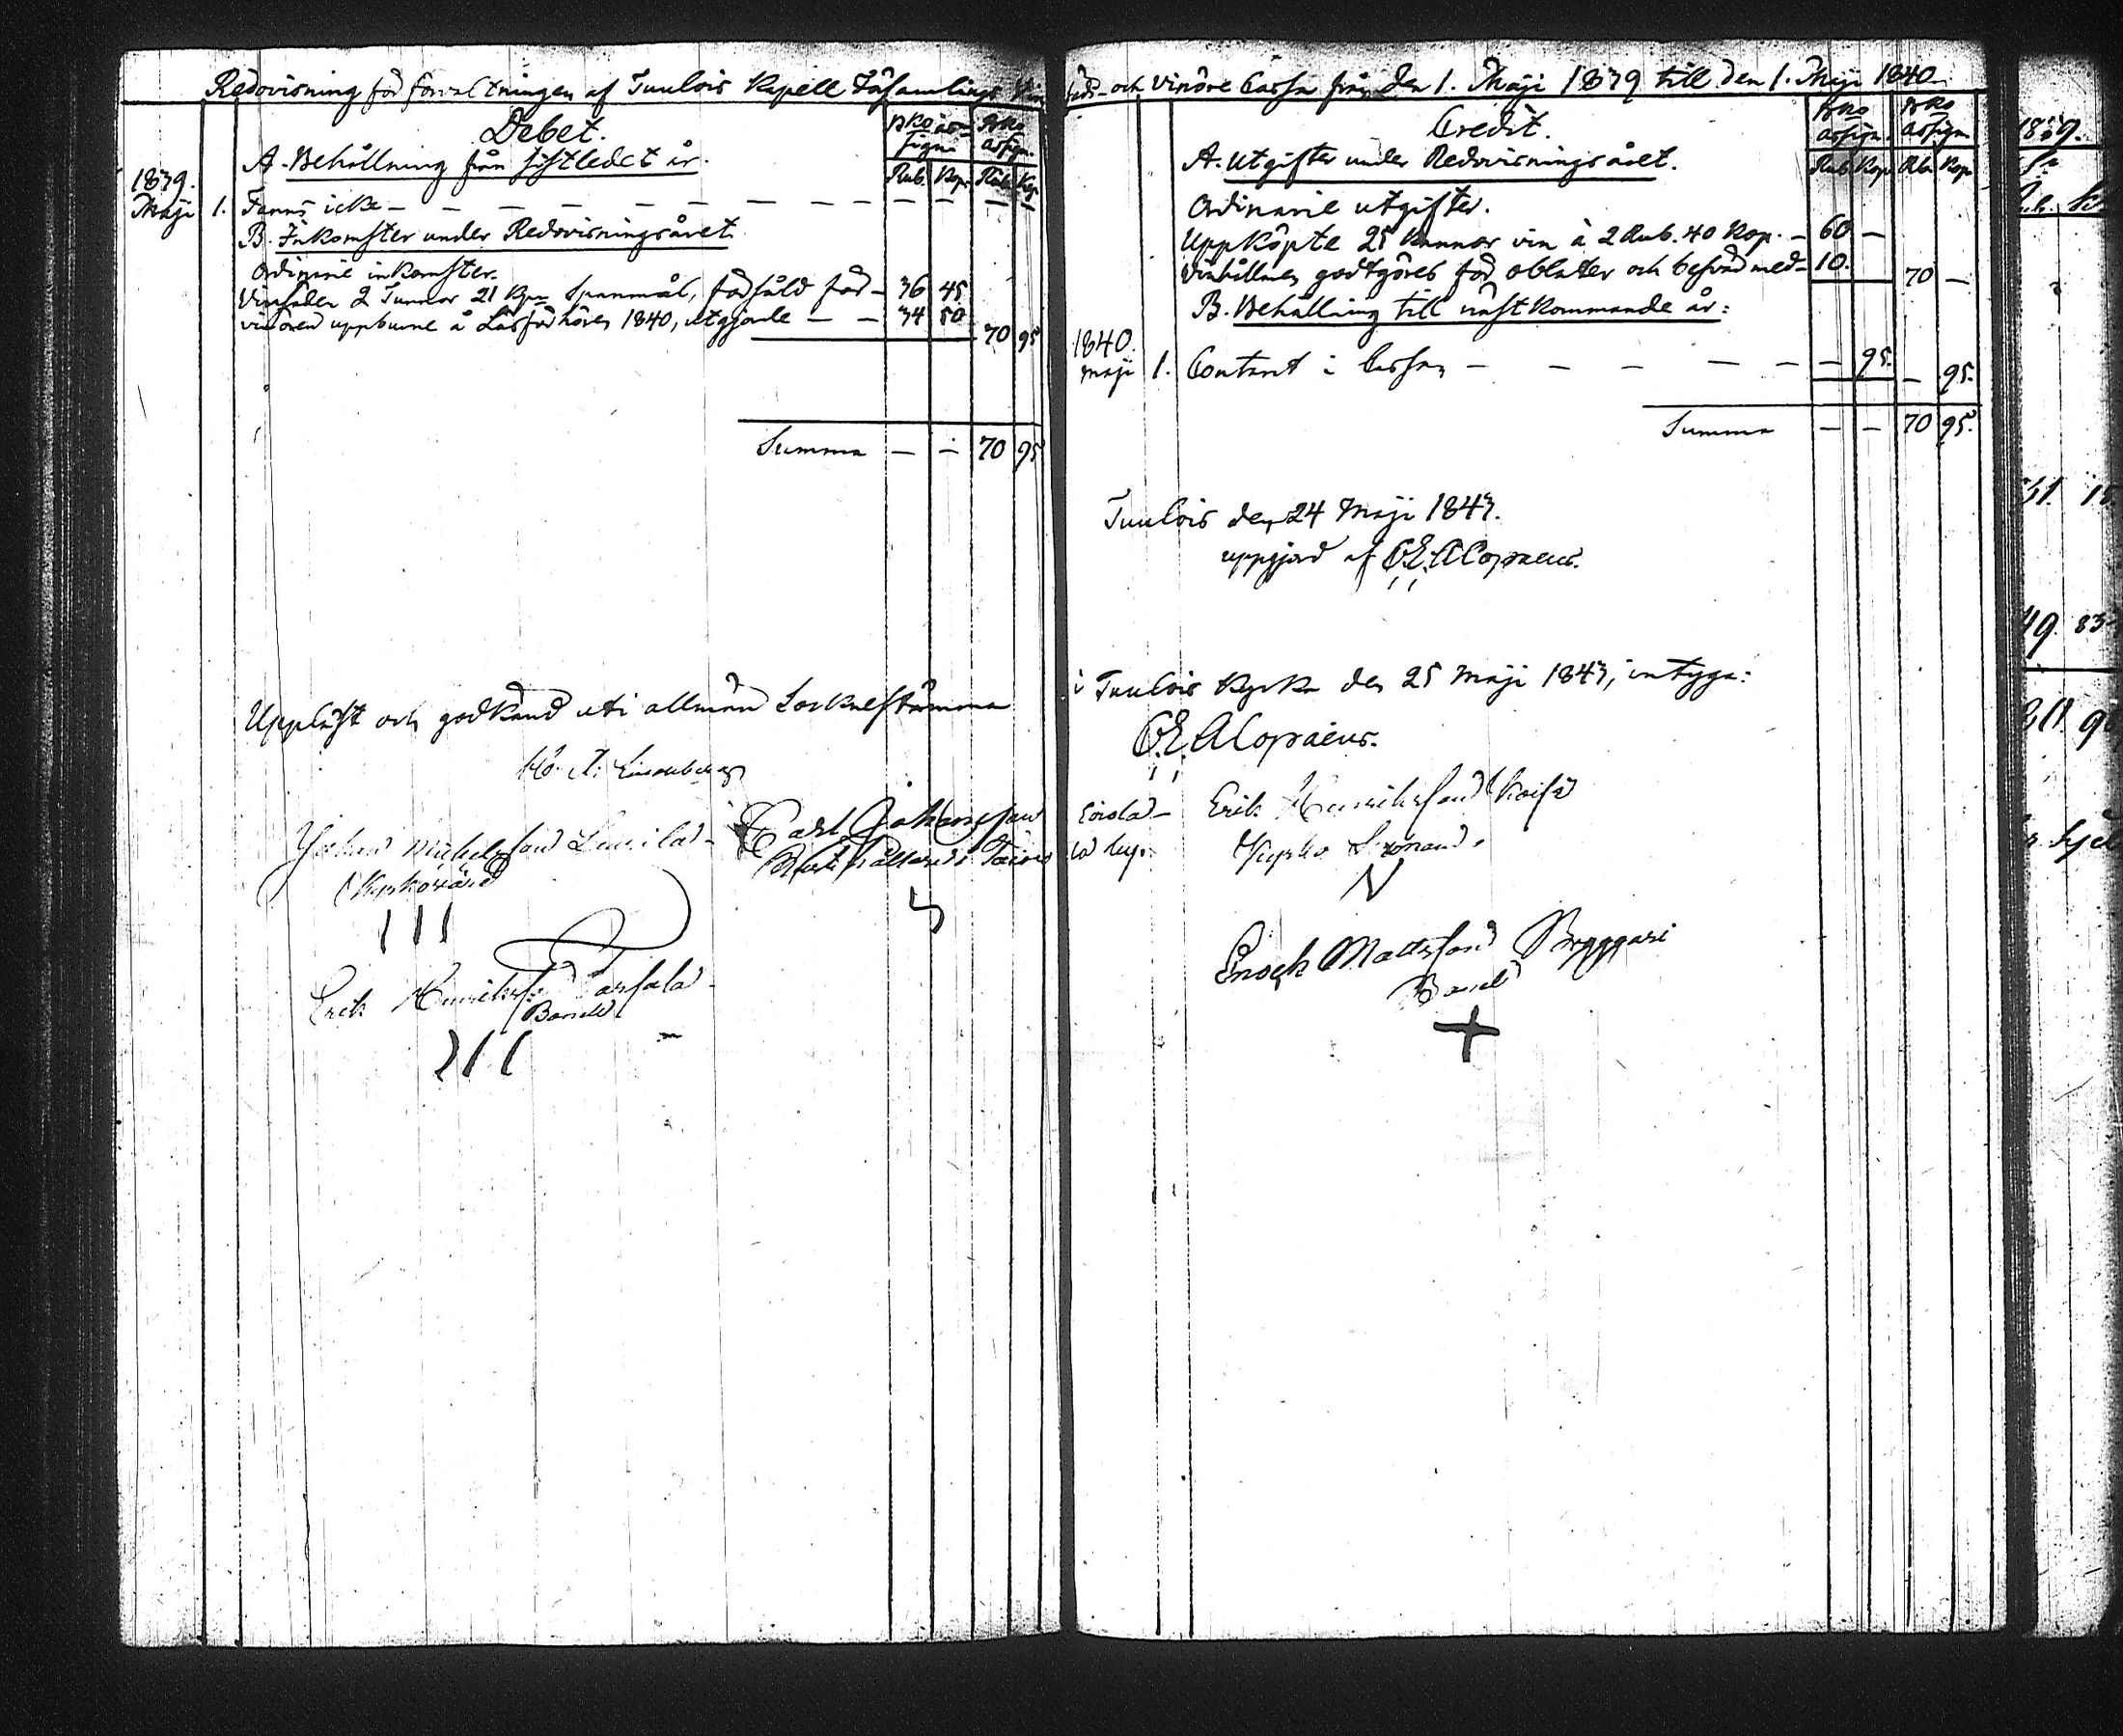 Redovisning för förvaltningen af Tuulois Kapell Församlings Vin
Debet.
Bko as-
sign.
Bko
assign.
A. Behållning från sistledet år.
Rub. Kop. Rub. Kop.
1839.
Maji 1. Fanns icke — — — — — — — — — — — — —
B. Inkomster under Redovisningsåret.
Ordinarie inkomster.
Vinsäden 2 Tunnor 21 Kpr Spanmål, försåld för — 36 45
vinören uppburne å Läsförhören 1840, utgjorde — — 34 50
70 95
Summa — — 70 95
Uppläst och godkänd uti allmän Sockenstämma
Johan Michelsson
Kyrkovärd
Carl Johansson
Erik Henriksson
Bonde
säds- och Vinöre Cassa från den 1. Maji 1839 till den 1. Maji 1840.
Credit.
Bko
assign.
Bko
assign.
A. Utgifter under Redovisningsåret.
Rub. Kop. Rb. Kop.
Ordinarie utgifter.
Uppköpte 25 Kannor vin à 2 Rub. 40 Kop. — 60 —
Vinhållmen godtgöres för oblater och besvär med — 10.
70 —
B. Behållning till nästkommande år:
1840.
Maji 1. Contant i Cassan — — — — — — 95.
— 95.
Summa — — 70 95.
Tuulois den 24 Maji 1843.
uppgjord af C.E. Alopaeus.
i Tuulois Kyrka den 25 Maji 1843, intyga:
C.E. Alopaeus.
Erik Henriksson
Enock Mattsson Bryggari
Bonde
1839.